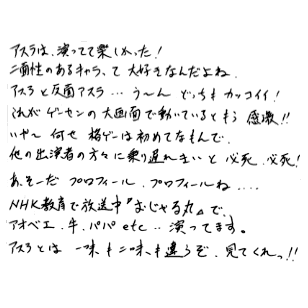 アスラは、演ってて楽しかった!
二面性のあるキャラって大好きなんだよね
アスラと反面アスラ…う~んどっちもカッコイイ!
これがゲーセンの大画面で動いているともう感激!!
いや~何せ格ゲーは初めてなもんで、
他の出演者の方々に乗り遅れまいと必死、必死!
あ、そーだプロフィール、プロフィールね....
NHK教育で放送中『おじゃる丸』で、
アオベエ、牛、パパetc…演ってます。
アスラとは一味も二味も違うぞ、見てくれっ!!